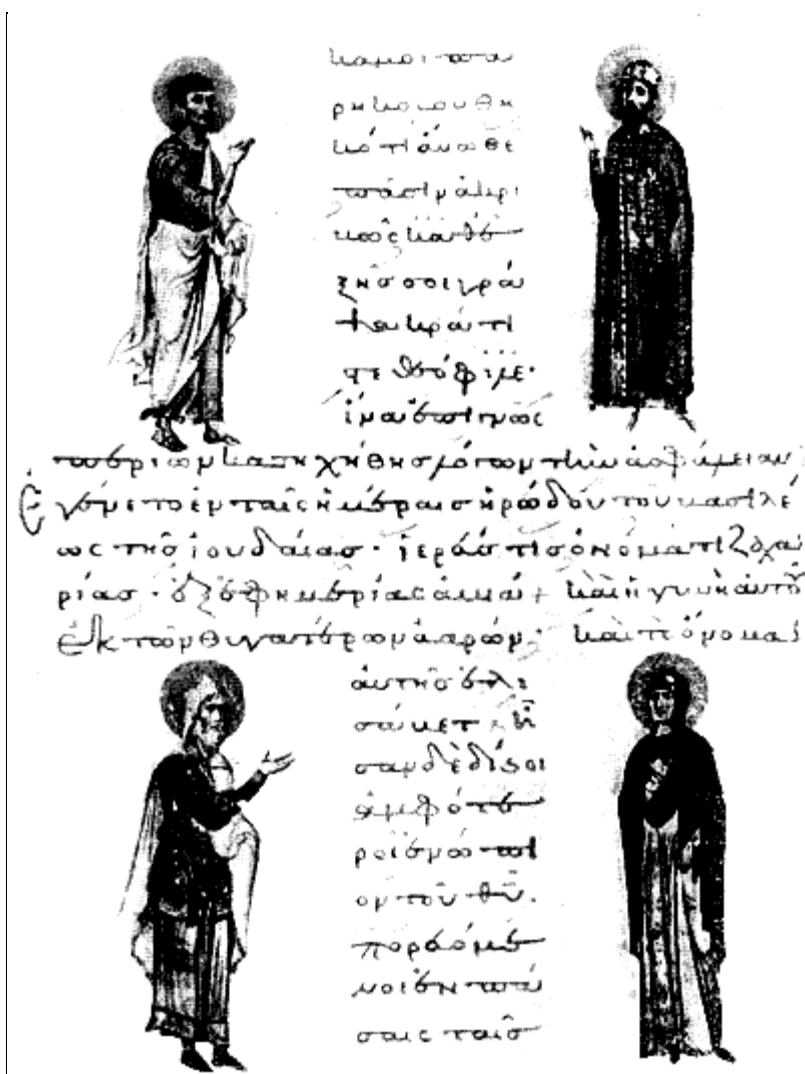 καμοὶ πα
ρηκολουθη
κότι ἄνωθε
πᾶσιν ἀκρι
βῶς καθε
ξῆς σοι γρά
ψαι κράτι
στε θεόφιλε·
ἵνα ἐπιγνῶς
περὶ ὧν κατηχήθης λόγων τὴν ἀσφάλειαν
Ἐγένετο ἐν ταῖς ἡμέραις ἡρώδου τοῦ βασιλέ
ως τῆς ἰουδαίας· ἱερεύς τις ὀνόματι ζαχα
ρίας· ἐξ ἐφημερίας ἀβιά· καὶ ἡ γυνὴ αὐτοῦ
ἐκ τῶν θυγατέρων ἀαρών· καὶ τὸ ὄνομα
αὐτῆς ἐλι
σάβετ· ἦ
σαν δὲ δίκαιοι
ἀμφότε
ροι ἐνώπι
ον τοῦ θυ̅.
πορευόμε
νοι ἐν πά
σαις ταῖς